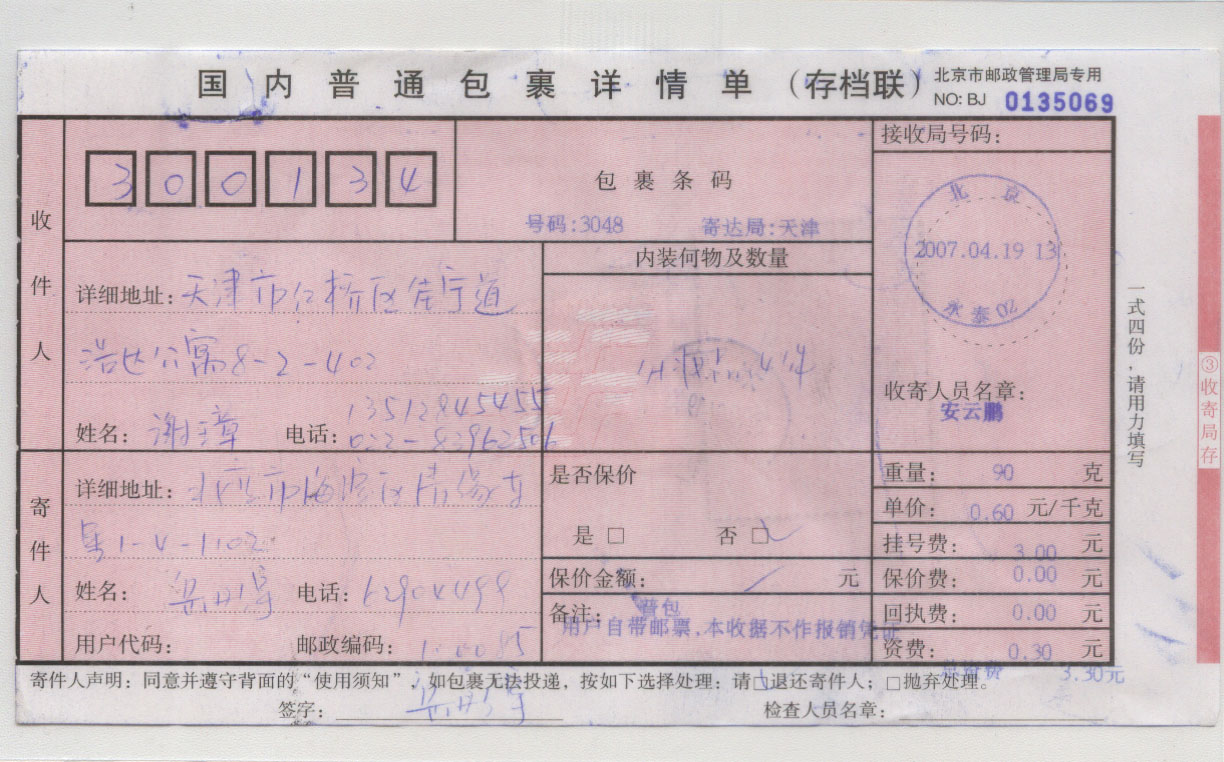 国内普通包裹详情单（存档联）
北京市邮政管理局专用
NO: BJ 0135069
收件人
300134
包裹条码
号码:3048 寄达局:天津
接收局号码：
北京
2007.04.19 13
永泰02
详细地址：天津市红桥区佳宁道
浩达公寓8-2-402
姓名： 谢 电话： 13512845455
022-82962506
内装何物及数量
4件
收寄人员名章：
安云鹏
寄件人
详细地址：北京市海淀区清缘东
里1-4-1102
姓名： 电话：62904499
用户代码： 邮政编码：100085
是否保价
是 □ 否 □
保价金额： 元
备注： 普包
用户自带邮票,本收据不作报销凭证
重量： 90 克
单价： 0.60 元/千克
挂号费： 3.00 元
保价费： 0.00 元
回执费： 0.00 元
资费： 0.30 元
3.30元
寄件人声明：同意并遵守背面的“使用须知”，如包裹无法投递，按如下选择处理：请□退还寄件人；□抛弃处理。
签字： 检查人员名章：
一式四份，请用力填写
③收寄局存